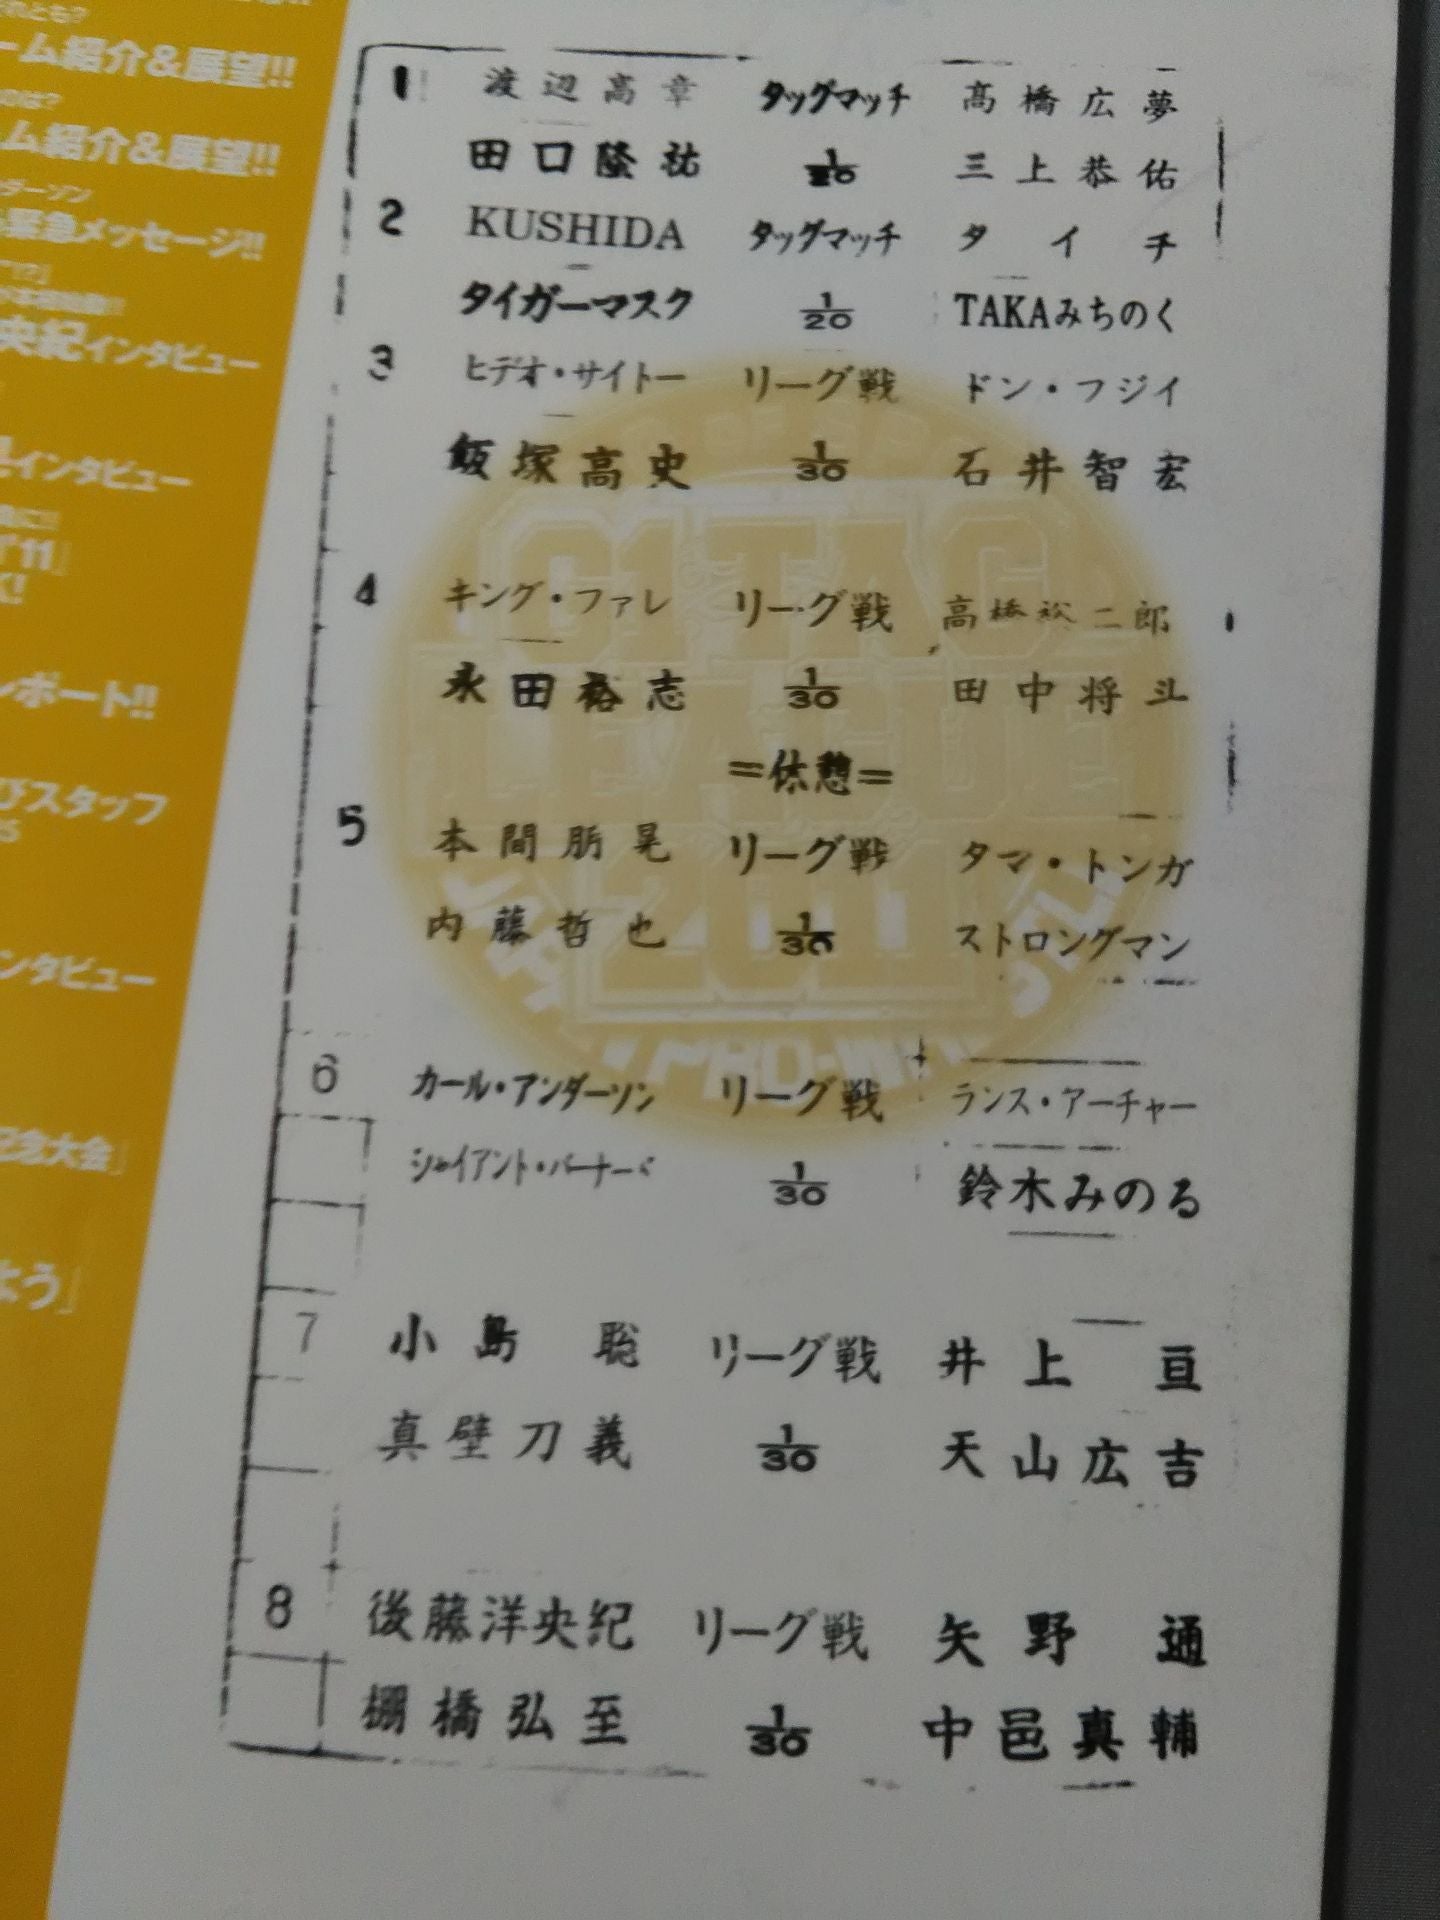 それとも?
ーム紹介&展望!!
のは?
ーム紹介&展望!!
ダーソン
緊急メッセージ!!
央紀インタビュー
インタビュー
'11」
ンポート!!
びスタッフ
ンタビュー
記念大会」
よう」
1 渡辺高章 タッグマッチ 高橋広夢
田口隆祐 1/20 三上恭佑
2 KUSHIDA タッグマッチ タイチ
タイガーマスク 1/20 TAKAみちのく
3 ヒデオ・サイトー リーグ戦 ドン・フジイ
飯塚高史 1/30 石井智宏
4 キング・ファレ リーグ戦 高橋裕二郎
永田裕志 1/30 田中将斗
=休憩=
5 本間朋晃 リーグ戦 タマ・トンガ
内藤哲也 1/30 ストロングマン
6 カール・アンダーソン リーグ戦 ランス・アーチャー
ジャイアント・バーナード 1/30 鈴木みのる
7 小島聡 リーグ戦 井上亘
真壁刀義 1/30 天山広吉
8 後藤洋央紀 リーグ戦 矢野通
棚橋弘至 1/30 中邑真輔
G1 TAG
LEAGUE
2011